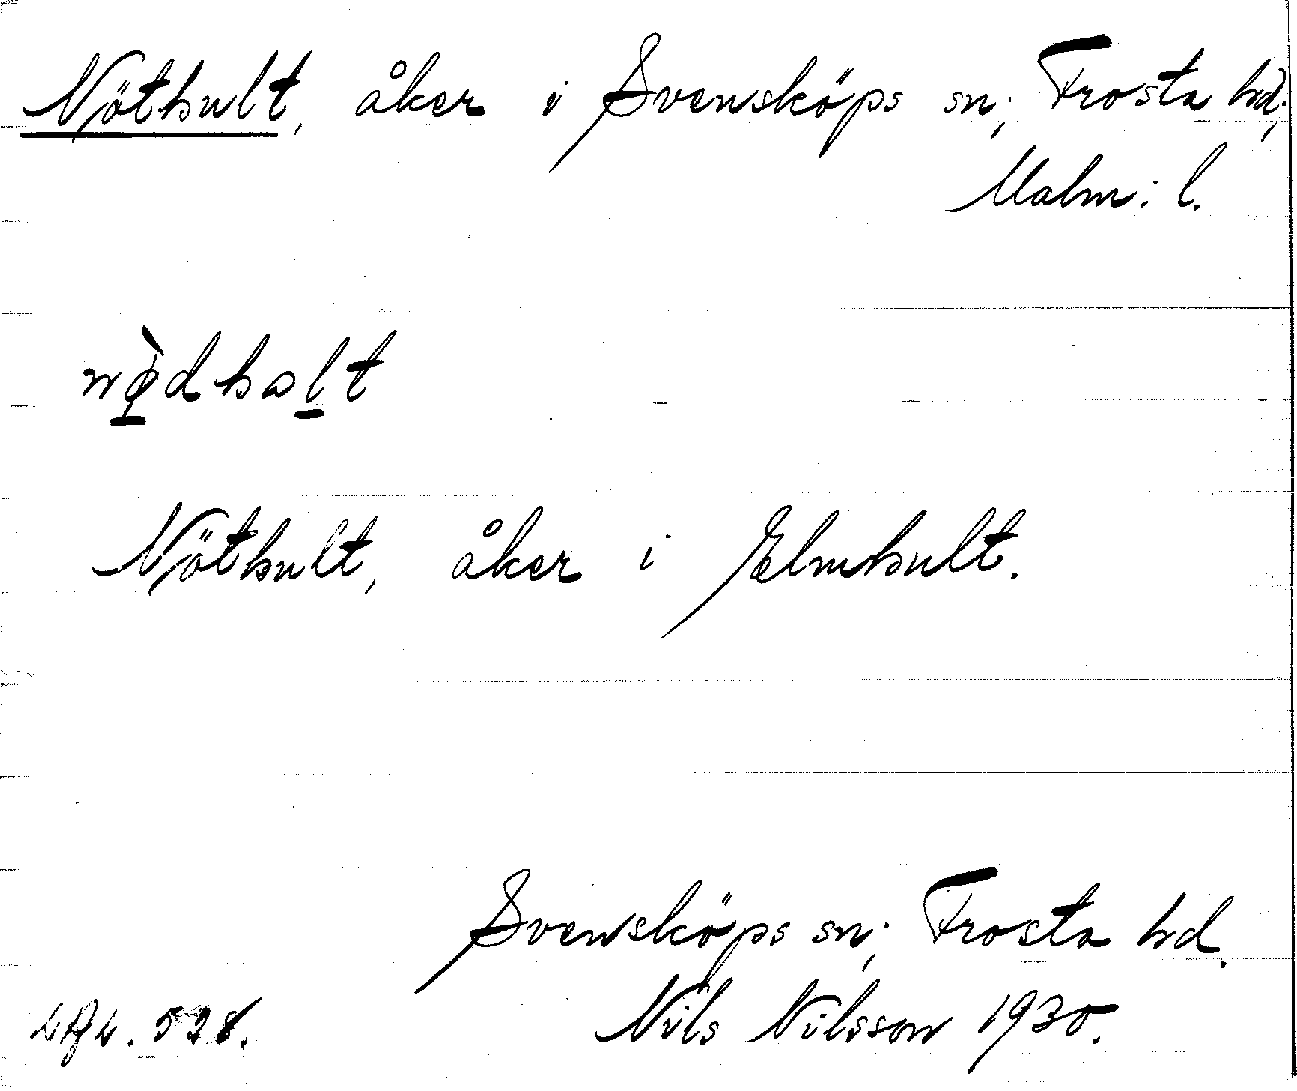 Nöthult, åker i Svensköps sn; Frosta hd;
Malm: l.
nø̀dhalt
Nöthult, åker i Elmhult.
Svensköps sn; Frosta hd.
Nils Nilsson 1930.
528.